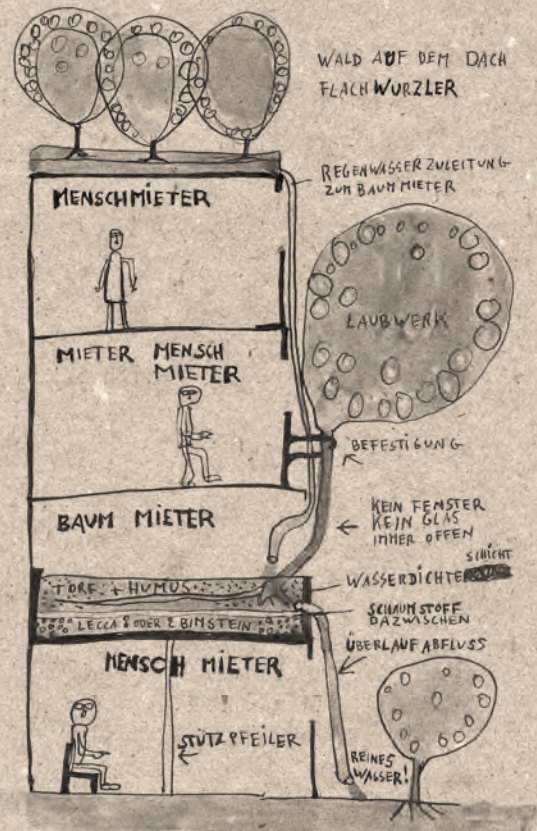 WALD AUF DEM DACH
FLACHWURZLER
REGENWASSERZULEITUNG
ZUM BAUMMIETER
MENSCHMIETER
LAUBWERK
MIETER MENSCH
MIETER
BEFESTIGUNG
BAUM MIETER
KEIN FENSTER
KEIN GLAS
IMMER OFFEN
SCHICHT
WASSERDICHTE
TORF + HUMUS
SCHAUMSTOFF
DAZWISCHEN
LECCA ODER BIMSTEIN
ÜBERLAUFABFLUSS
MENSCH MIETER
STÜTZPFEILER
REINES
WASSER!